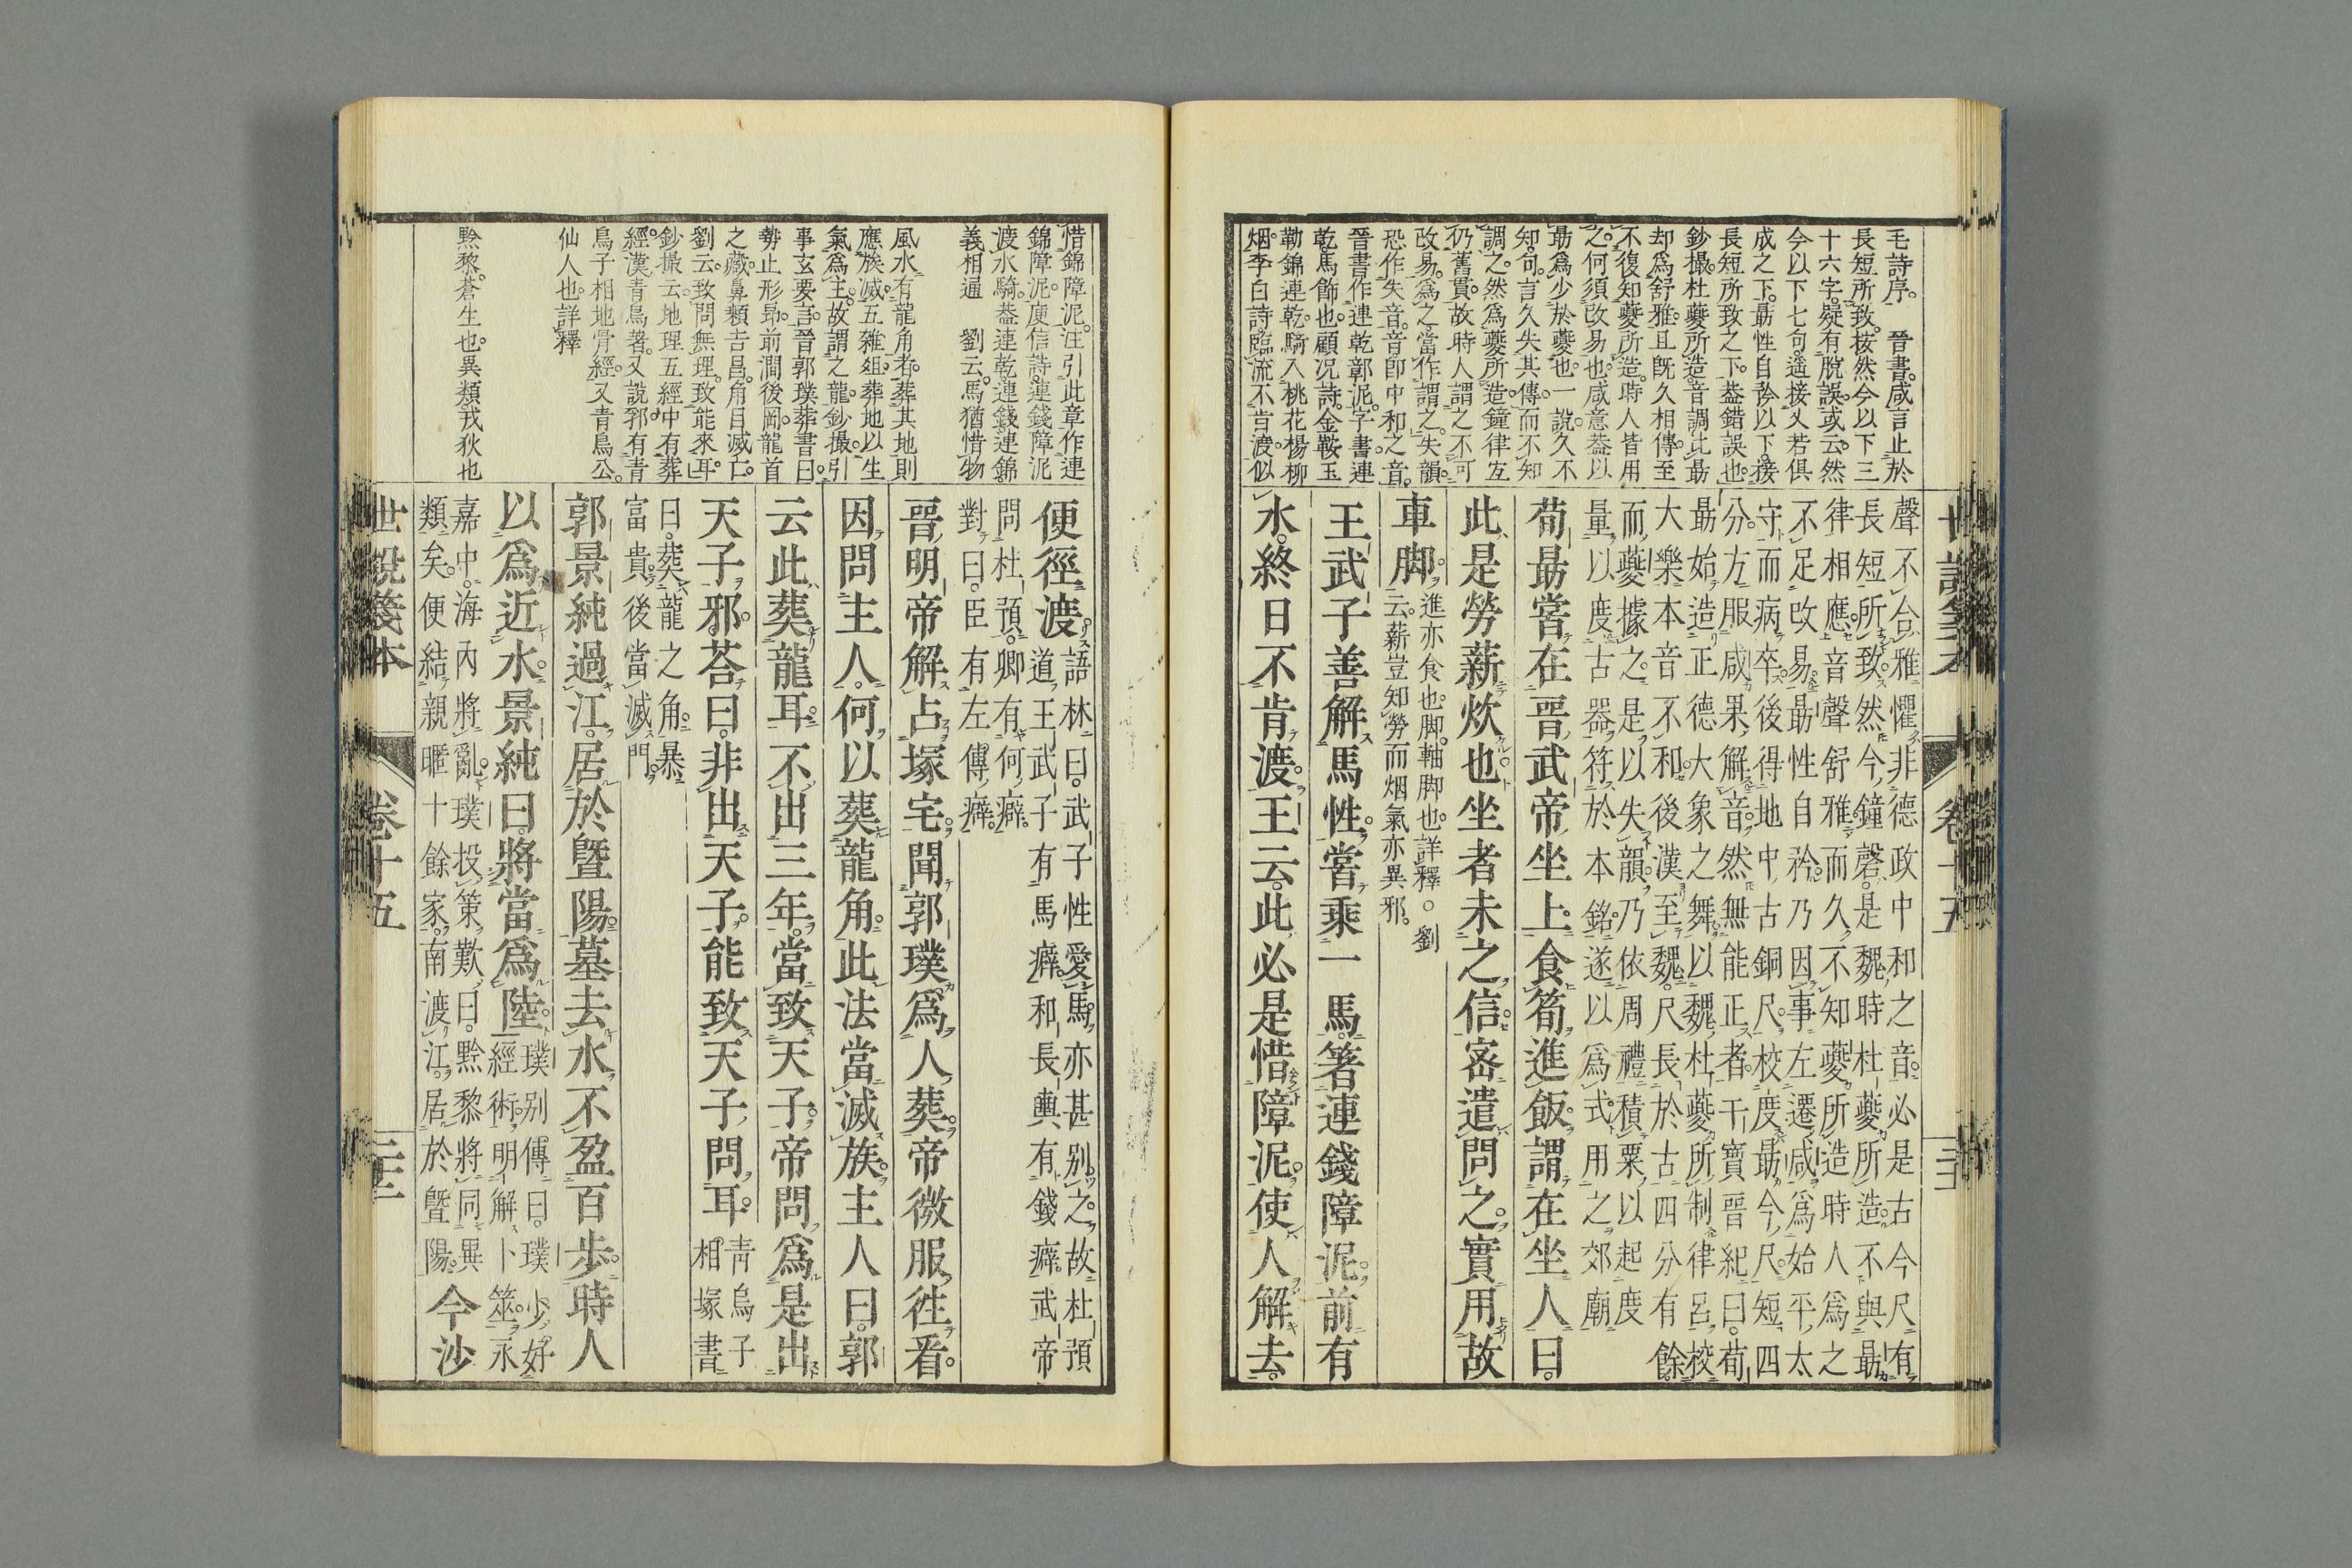 毛詩序。　晉書。咸言止於
長短所致。按然今以下三
十六字。疑有脫誤。或云。然
今以下七句。遥接又若俱
成之下。勗性自矜以下。接
長短所致之下。蓋錯誤也。
鈔撮。杜夔所造。音調比勗
却爲舒雅。且既久相傳。至
不復知夔所造。時人皆用
之。何須改易也。咸意蓋以
勗爲少於夔也。一說。久不
知句。言久失其傳。而不知
調之。然爲夔所造。鐘律宏
仍舊貫。故時人謂之不可
改易。爲之當作謂之。失韻。
恐作失音。音卽中和之音。
晉書作連乾鄣泥。字書。連
乾。馬飾也。顧况詩。金鞍玉
勒錦連乾。騎入桃花楊柳
烟。李白詩。臨流不肯渡。似
聲不合雅。懼非德政中和之音。必是古今尺有
長短所致。然今鐘磬。是魏時杜夔所造。不與勗
律相應。音聲舒雅。而久不知夔所造。時人爲之
不足改易。勗性自矜。乃因事左遷咸爲始平太
守。而病卒。後得地中古銅尺。校度勗今尺。短四
分。方服咸果解音。然無能正者。干寶晉紀曰。荀
勗始造正德大象之舞。以魏杜夔所制律呂。校
大樂本音不和。後漢至魏。尺長於古四分有餘。
而夔據之。是以失韻。乃依周禮積粟。以起度
量。以度古器。符於本銘。遂以爲式。用之郊廟。
荀勗嘗在晉武帝坐上。食筍進飯。謂在坐人曰。
此是勞薪炊也。坐者未之信。密遣問之。實用故
車脚。進亦食也。脚。軸脚也。詳釋。○劉
云。薪豈知勞。而烟氣亦異邪。
王武子善解馬性。嘗乘一馬。箸連錢障泥。前有
水。終日不肯渡。王云。此必是惜障泥。使人解去。
世說箋本　卷十五
惜錦障泥。注引此章作連
錦障泥。庾信詩。連錢障泥
渡水騎。蓋連乾連錢。連錦
義相通　劉云。馬猶惜物
風水有龍角者。葬其地則
應族滅。五雜俎。葬地以生
氣爲主。故謂之龍。鈔撮。引
事玄要言。晉郭璞葬書曰。
勢止形昂。前澗後岡。龍首
之藏。鼻顙吉昌。角目滅亡。
劉云。致問無理。致能來耳。
鈔撮云。地理五經中有葬
經。漢青烏著。又說郛有青
烏子相地骨經。又青烏公。
仙人也。詳釋
黔黎。蒼生也。異類。戎狄也
便徑渡。語林曰。武子性愛馬。亦甚别之。故杜預
道王武子有馬癖。和長輿有錢癖。武帝
問杜預。卿有何癖。
對曰。臣有左傳癖。
晉明帝解占塚宅。聞郭璞爲人葬。帝微服往看。
因問主人。何以葬龍角。此法當滅族。主人曰。郭
云。此葬龍耳。不出三年。當致天子。帝問。爲是出
天子邪。荅曰。非出天子。能致天子問耳。靑烏子
相塚書
曰。葬龍之角。暴
富貴。後當滅門。
郭景純過江。居於曁陽。墓去水不盈百歩。時人
以爲近水。景純曰。將當爲陸。璞别傳曰。璞少好
經術。明解卜筮。永
嘉中。海內將亂。璞投策歎曰。黔黎將同異
類矣。便結親暱十餘家。南渡江。居於曁陽。今沙
世說箋本　卷十五